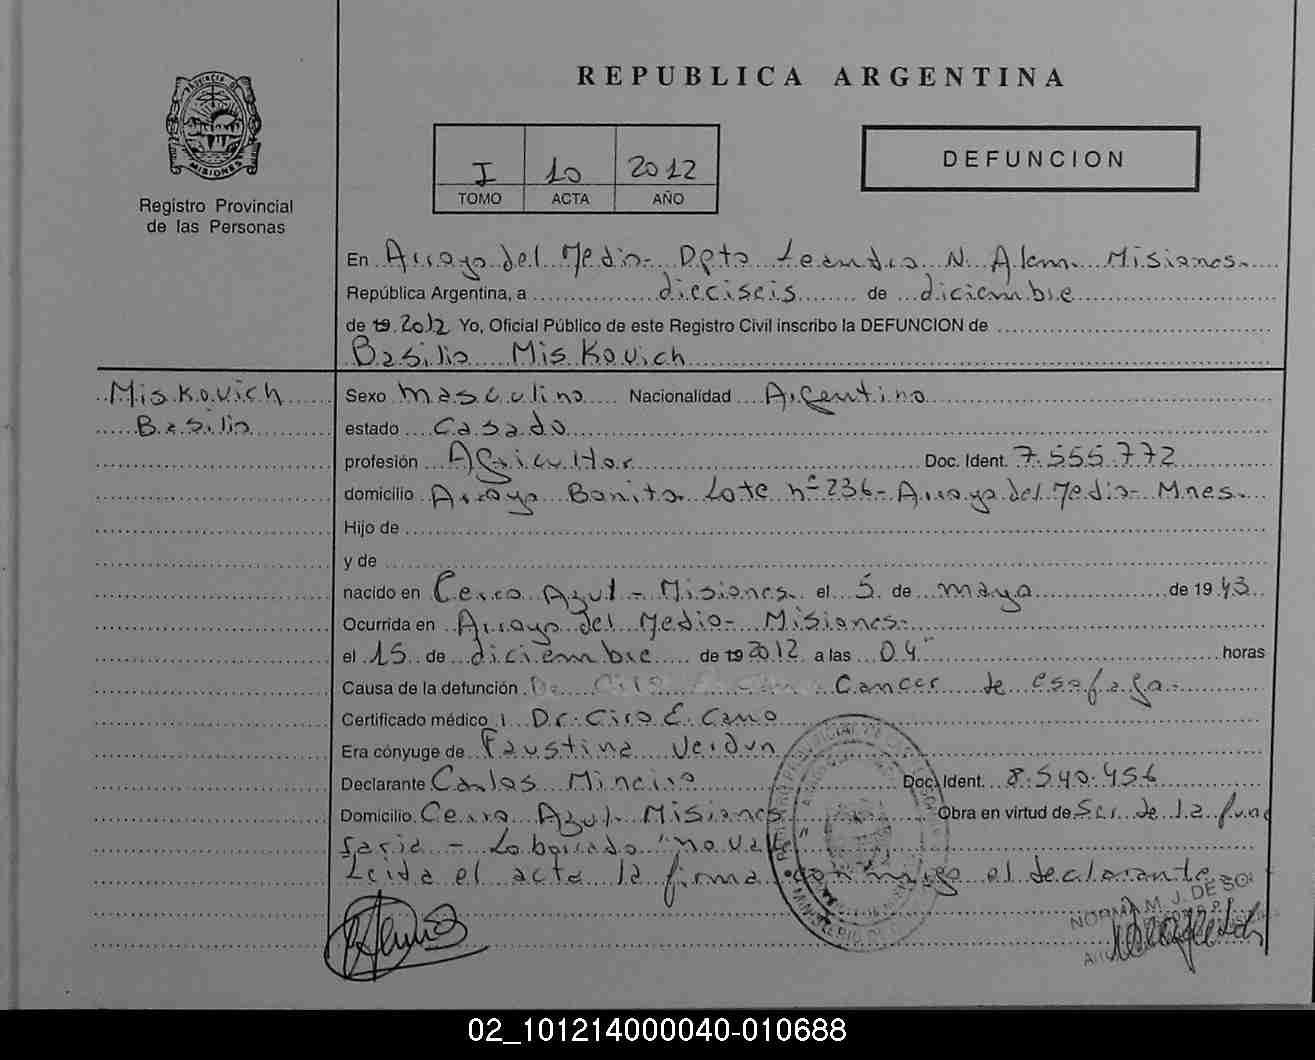 REPUBLICA ARGENTINA
PROVINCIA DE
MISIONES
Registro Provincial
de las Personas
I 10 2012
TOMO ACTA AÑO
DEFUNCION
En Arroyo del Medio- Dpto Leandro N. Alem. Misiones.
República Argentina, a dieciseis de diciembre
de 19 2012 Yo, Oficial Público de este Registro Civil inscribo la DEFUNCION de
Basilio Miskovich
Miskovich
Basilio
Sexo masculino Nacionalidad Argentino
estado Casado
profesión Agricultor Doc. Ident. 7.555.772
domicilio Arroyo Bonito Lote nº 236- Arroyo del Medio- Mnes.
Hijo de
y de
nacido en Cerro Azul - Misiones. el 5 de mayo de 1943
Ocurrida en Arroyo del Medio- Misiones.
el 15 de diciembre de 19 2012 a las 04" horas
Causa de la defunción Cancer de esofago.
Certificado médico Dr. Ciro E. Cano
Era cónyuge de Faustina Verdun
Declarante Carlos Mineiro Doc. Ident. 8.540.456
Domicilio Cerro Azul- Misiones Obra en virtud de Ser de la fune
raria - Lo borrado "no vale"
Leida el acta la firma conmigo el declarante.
NORMA M. J. DE
02_101214000040-010688